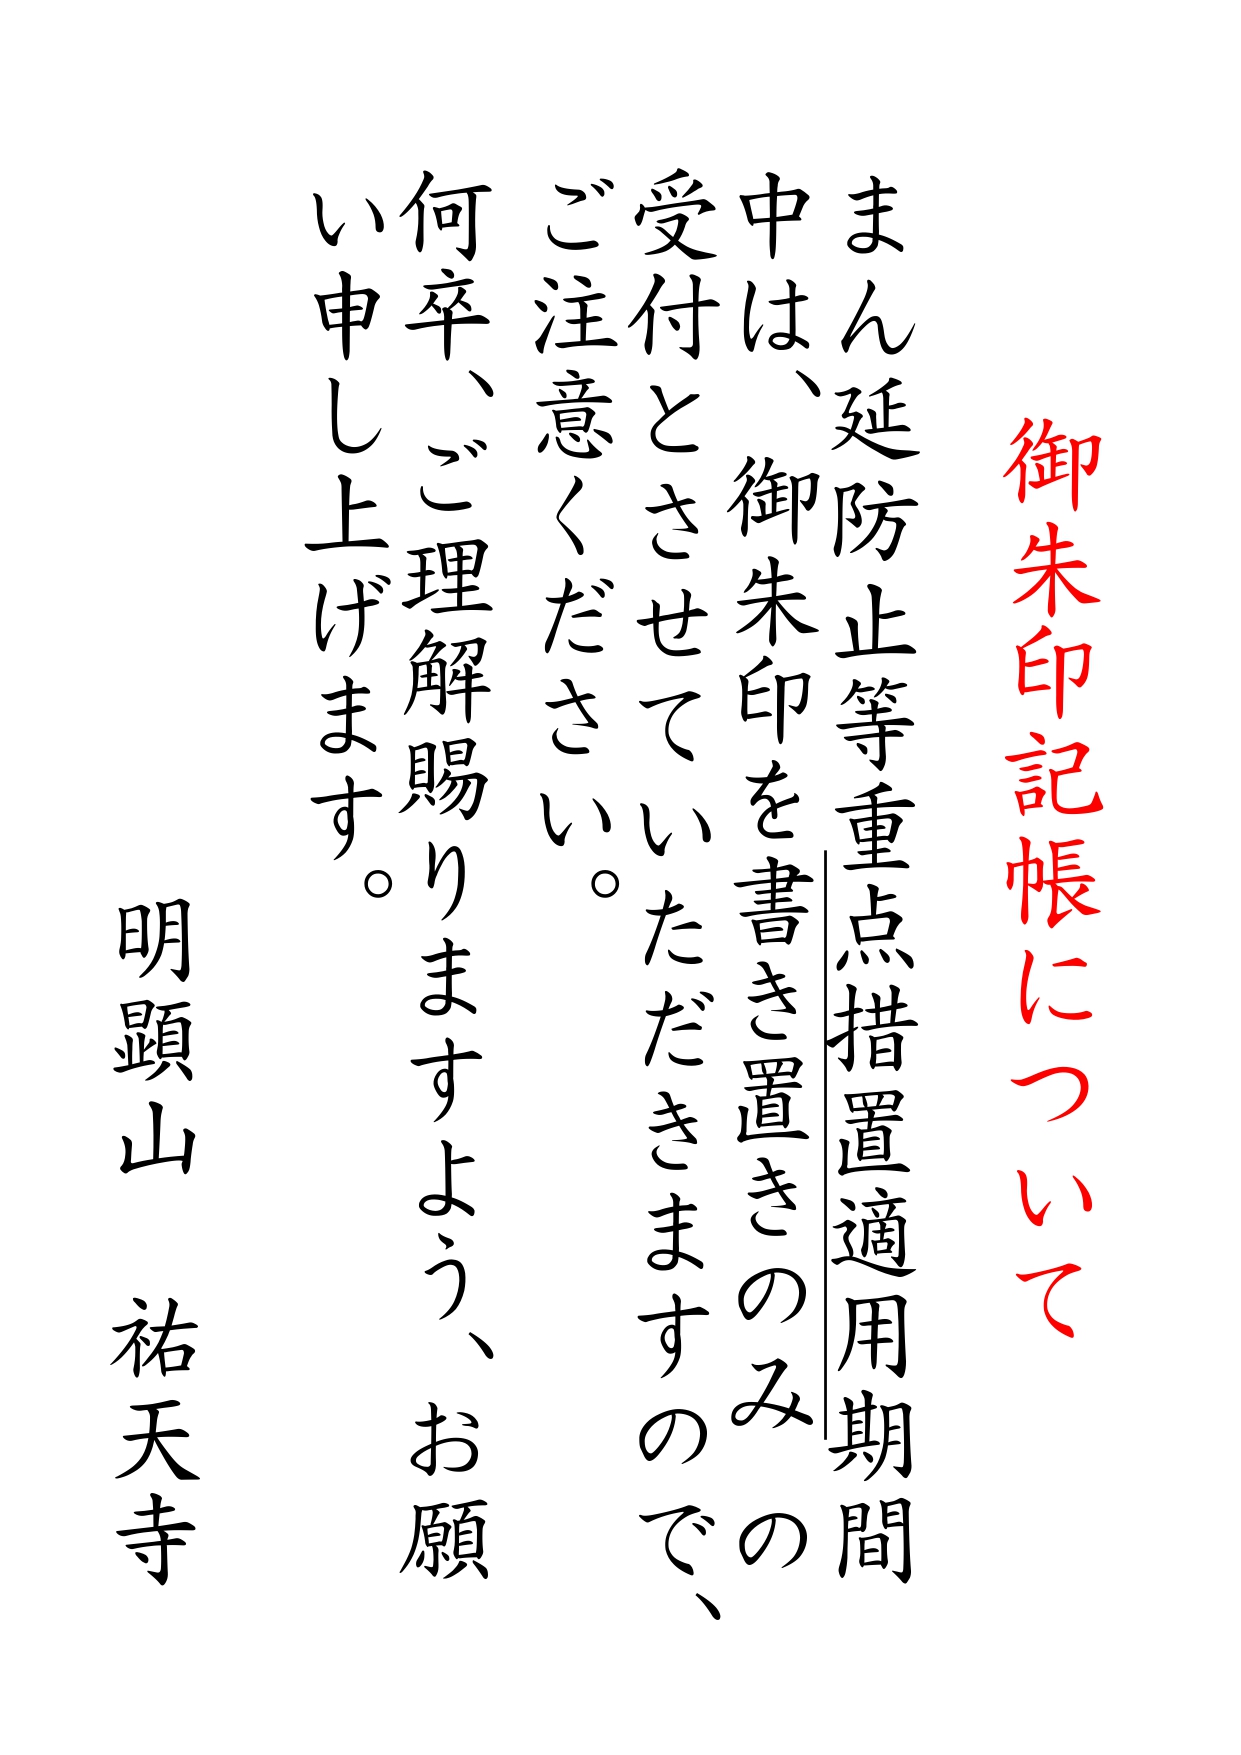 御朱印記帳について
まん延防止等重点措置適用期間
中は、御朱印を書き置きのみの
受付とさせていただきますので、
ご注意ください。
何卒、ご理解賜りますよう、お願
い申し上げます。
明顕山　祐天寺